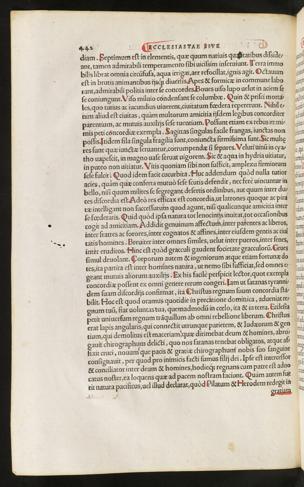 442 ECCLESIASTAE SIVE
diam. Septimum est in elementis, quæ quum natiuis qualitatibus dissideant, tamen admirabili temperamento sibi uicissim inseruiunt. Terra immobilis librat omnia circūfusa, aqua irrigat, aer refocillat, ignis agit. Octauum
est in brutis animantibus
Apes & formicæ in commune laborant, admirabili politia inter se concordes. Boues uiso lupo uelut in aciem se
se coniungunt.
Quin & pisces mortales, quo tutius ac iucundius uiuerent, ciuitatum fœdera repererunt.
aliud est ciuitas, quàm multorum amicitia iisdem legibus concorditer
parentium, ac mutuis auxiliis sese tuentium. Possunt etiam ex rebus minimis peti concordiæ exempla. Sagittas singulas facile frangas, iunctas non
possis. Indem fila singula fragilia sunt, coniuncta firmissima sunt.
Sic & aqua in hydria uitiatur,
in puteo non uitiatur. Vitis quoniam sibi non sufficit, amplexu firmiorum
sese fulcit. Quod idem facit cucurbita. Huc addendum quòd nulla tutior
acies, quàm quæ conferta mutuò sese scutis defendit, nec ferè uincuntur in
bello, nisi quum milites se segregare deserūt ordinibus, aut quum inter duces discordia est. Adeò res efficax est concordia, ut latrones quoque ac piratæ intelligant non successurum quod agunt, nisi qualicunque amicitia inter
se fœderatis. Quid quòd ipsa natura tot lenocinijs inuitat, tot occasionibus
cogit ad amicitiam. Addidit genuinum affectum, inter parentes ac liberos,
inter fratres ac sorores, inter cognatos & affines, inter eiusdem gentis ac ciuitatis homines.
inter omnes similes, uelut inter pueros, inter senes,
inter eruditos. Hinc est quòd graculi gaudent societate graculorū. Grues
simul deuolant. Corporum autem & ingeniorum atque etiam fortunæ dotes, ita partita est inter homines natura, ut nemo sibi sufficiat, sed omnes egeant mutuis aliorum auxilijs. Ex his facilè perspicit lector, quot exempla
concordiæ possent ex omni genere rerum congeri. Iam ut Satanæ tyrannidem suam dissidijs confirmat, ita Christus regnum suum concordia stabilit. Hoc est quod oramus quotidie in precatione dominica, adueniat regnum tuū, fiat uoluntas tua, quemadmodū in cœlo, ita & in terra. Ecclesia
petit uniuersum regnum trāquillum ab omni rebellione liberum. Christus
erat lapis angularis, qui connectit utrunque parietem, & Iudæorum & gentium, qui demolitus est maceriam, quæ dirimebat deum & homines, abrogauit chirographum delicti, quo nos Satanas tenebat obligatos, atque affixit cruci, nouum quæ pacis & gratiæ chirographum nobis suo sanguine
consignauit, per quod pro inimicis facti sumus filij dei. Ipse est intercessor
& conciliator inter deum & homines, hodieque regnans cum patre est aduocatus noster, ea loquens quæ ad pacem nostram faciunt. Quàm autem fuerit natura pacificus, uel illud declarat, quòd Pilatum & Herodem redegit in
gratiam